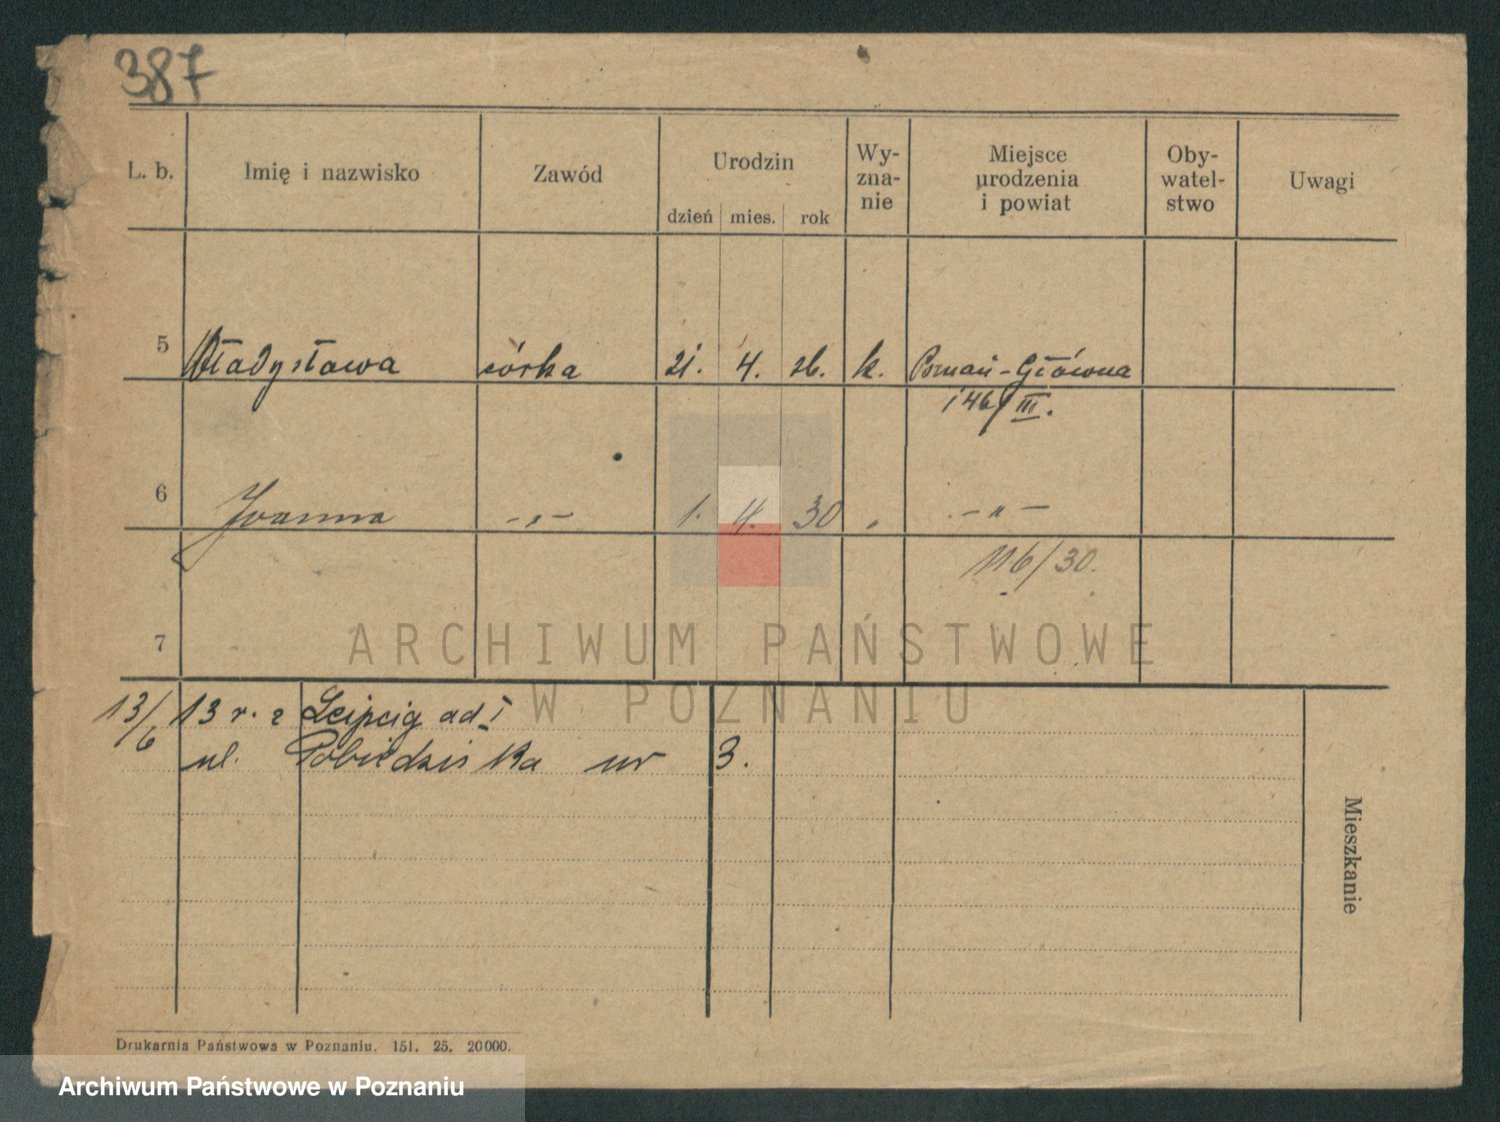 387
L. b. Imię i nazwisko Zawód Urodzin dzień mies. rok Wy-zna-nie Miejsce urodzenia i powiat Oby-watel-stwo Uwagi
5 Władysława córka 21. 4. 26. k. Poznań-Główna
146/III.
6 Joanna -„- 1. 4. 30 „ -„-
116/30.
7
ARCHIWUM PAŃSTWOWE
W POZNANIU
13/6 13 r. z Leipcig ad I
ul. Pobiedziska nr 3.
Mieszkanie
Drukarnia Państwowa w Poznaniu. 151. 25. 20000.
Archiwum Państwowe w Poznaniu